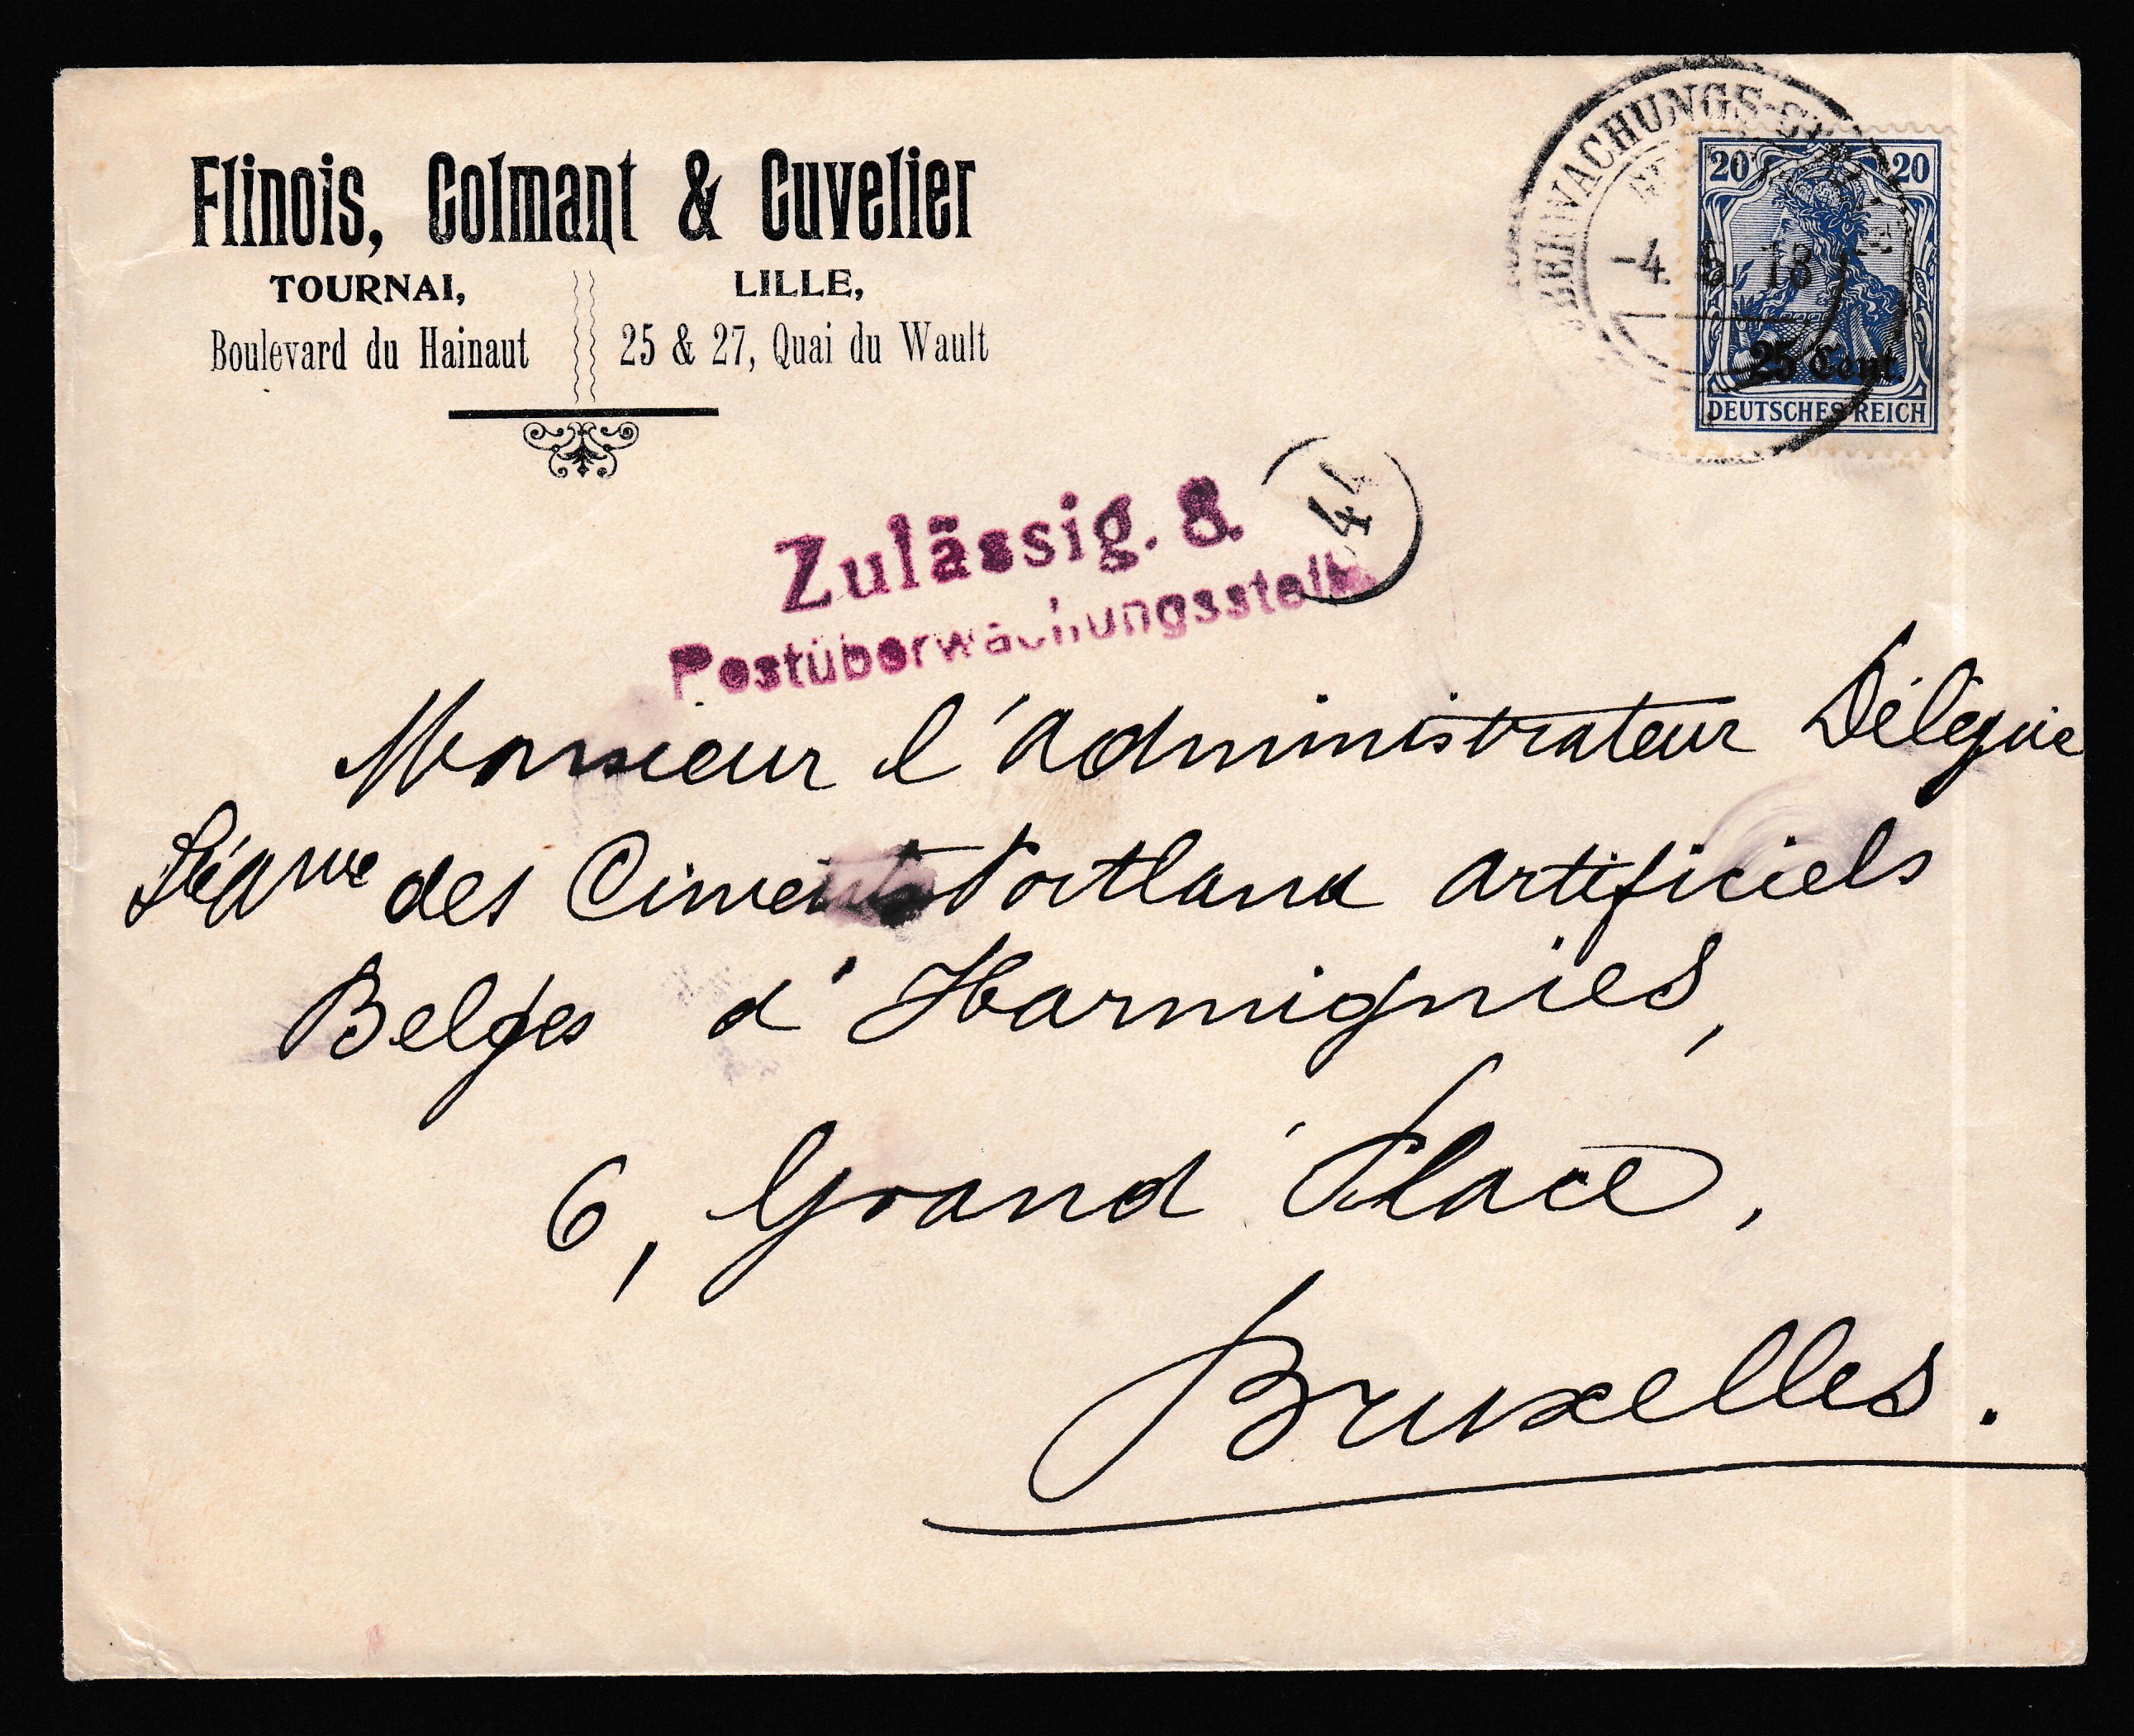 Flinois, Colmant & Cuvelier
TOURNAI,
LILLE,
Boulevard du Hainaut
25 & 27, Quai du Wault
20 20
-4 18
25 Cent.
DEUTSCHES REICH
44
Zulässig. 8.
Postüberwachungsstelle
Monsieur l'Administrateur Délégué
des Ciments Portland Artificiels
Belges d'Harmignies,
6, Grand'Place,
Bruxelles.